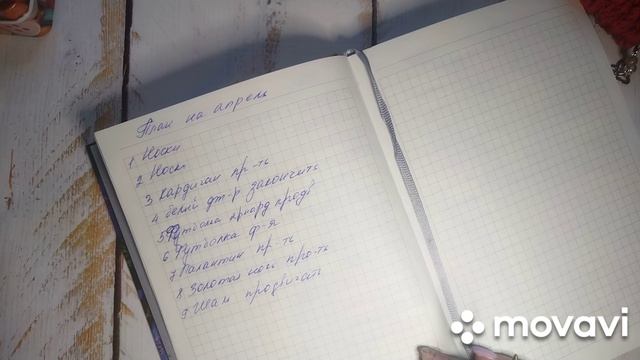 План на апрель
1 Носки
2 Носки
3 Кардиган пр-ть
4 белый дж-р закончить
5 Футболка
6 Футболка ф-я
7 Палантин пр-ть
8 Золотая про-ть
9 Шали продвигать
movavi